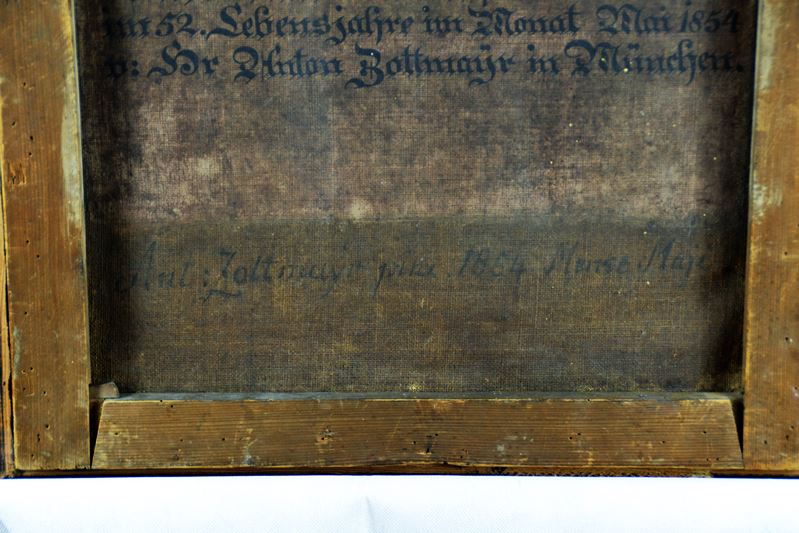 im 52. Lebensjahre im Monat Mai 1854
v: Hr Anton Zottmayr in München.
Ant: Zottmayr pixi. 1854. Mense Maji.